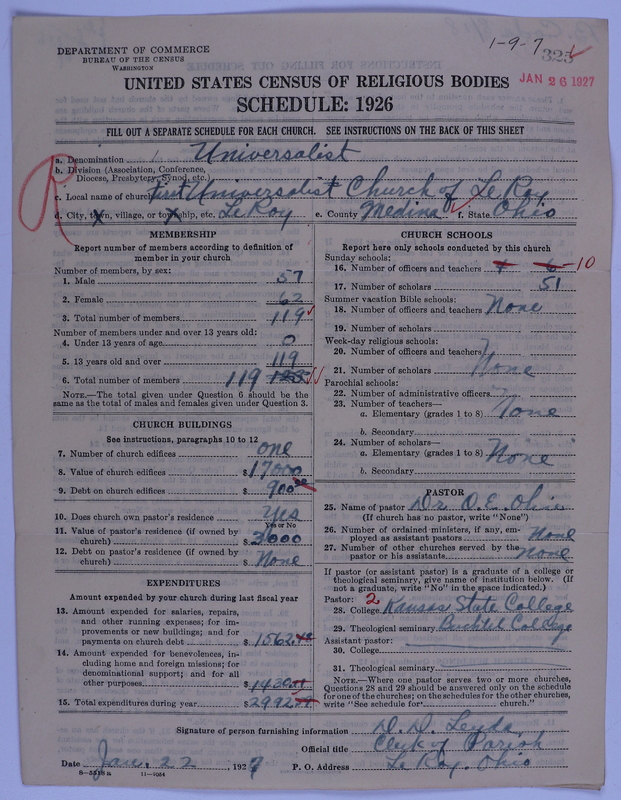 1-9-7
325
DEPARTMENT OF COMMERCE
BUREAU OF THE CENSUS
WASHINGTON
JAN 26 1927
UNITED STATES CENSUS OF RELIGIOUS BODIES
SCHEDULE: 1926
FILL OUT A SEPARATE SCHEDULE FOR EACH CHURCH. SEE INSTRUCTIONS ON THE BACK OF THIS SHEET
R
a. Denomination Universalist
b. Division (Association, Conference, Diocese, Presbytery, Synod, etc.)
c. Local name of church First Universalist Church of LeRoy
d. City, town, village, or township, etc. LeRoy e. County Medina f. State Ohio
MEMBERSHIP
Report number of members according to definition of
member in your church
Number of members, by sex:
1. Male 57
2. Female 62
3. Total number of members 119
Number of members under and over 13 years old:
4. Under 13 years of age 0
5. 13 years old and over 119
6. Total number of members 119
NOTE.—The total given under Question 6 should be the
same as the total of males and females given under Question 3.
CHURCH BUILDINGS
See instructions, paragraphs 10 to 12
7. Number of church edifices one
8. Value of church edifices $ 17000
9. Debt on church edifices $ 900
10. Does church own pastor's residence Yes
Yes or No
11. Value of pastor's residence (if owned by
church) $ 3000
12. Debt on pastor's residence (if owned by
church) $ None
EXPENDITURES
Amount expended by your church during last fiscal year
13. Amount expended for salaries, repairs,
and other running expenses; for im-
provements or new buildings; and for
payments on church debt $ 1562
14. Amount expended for benevolences, in-
cluding home and foreign missions; for
denominational support; and for all
other purposes $ 1430
15. Total expenditures during year $ 2992
CHURCH SCHOOLS
Report here only schools conducted by this church
Sunday schools:
16. Number of officers and teachers 4 6 10
17. Number of scholars 51
Summer vacation Bible schools:
18. Number of officers and teachers None
19. Number of scholars
Week-day religious schools:
20. Number of officers and teachers
21. Number of scholars None
Parochial schools:
22. Number of administrative officers
23. Number of teachers—
a. Elementary (grades 1 to 8) None
b. Secondary
24. Number of scholars—
a. Elementary (grades 1 to 8) None
b. Secondary
PASTOR
25. Name of pastor Dr. O.E.
(If church has no pastor, write "None")
26. Number of ordained ministers, if any, em-
ployed as assistant pastors None
27. Number of other churches served by the
pastor or his assistants None
If pastor (or assistant pastor) is a graduate of a college or
theological seminary, give name of institution below. (If
not a graduate, write "No" in the space indicated.)
Pastor: 2
28. College Kansas State College
29. Theological seminary Buchtel College
Assistant pastor:
30. College
31. Theological seminary
NOTE.—Where one pastor serves two or more churches,
Questions 28 and 29 should be answered only on the schedule
for one of the churches; on the schedules for the other churches,
write "See schedule for church."
Signature of person furnishing information D. D. Leyda
Official title Clerk of Parish
Date Jan. 22, 1927 P. O. Address LeRoy, Ohio
11—9054